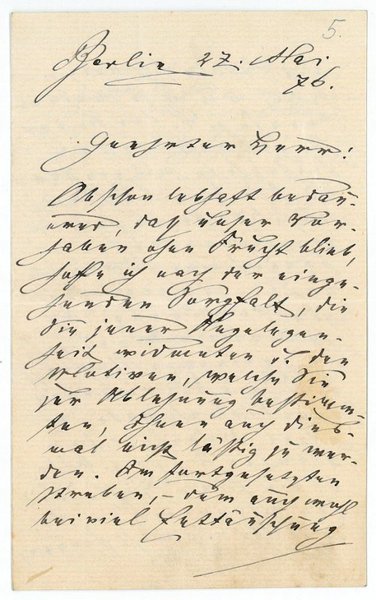 5.
Berlin 27. Mai
76.
Geehrter Herr:
Obschon lebhaft bedau-
ernd, daß unser Vor-
haben ohne Frucht blieb,
hoffe ich nach der einge-
henden Sorgfalt, die
Sie jener Angelegen-
heit widmeten u. den
Motiven, welche Sie
zur Ablehnung bestimm-
ten, Ihnen auch dies-
mal nicht lästig zu wer-
den. Im fortgesetzten
Streben, – dem auch wohl
bei viel Enttäuschung